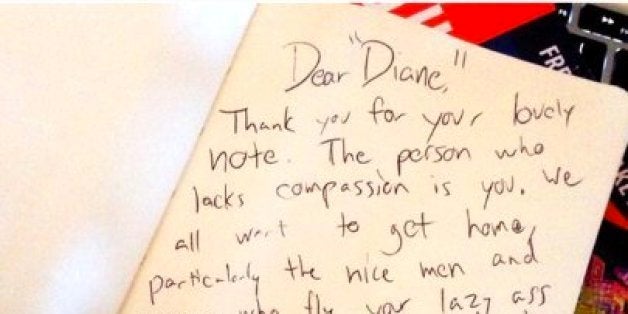 Dear "Diane,"
Thank you for your lovely
note. The person who
lacks compassion is you. We
all want to get home,
particularly the nice men and
who fly your lazy ass
FRE